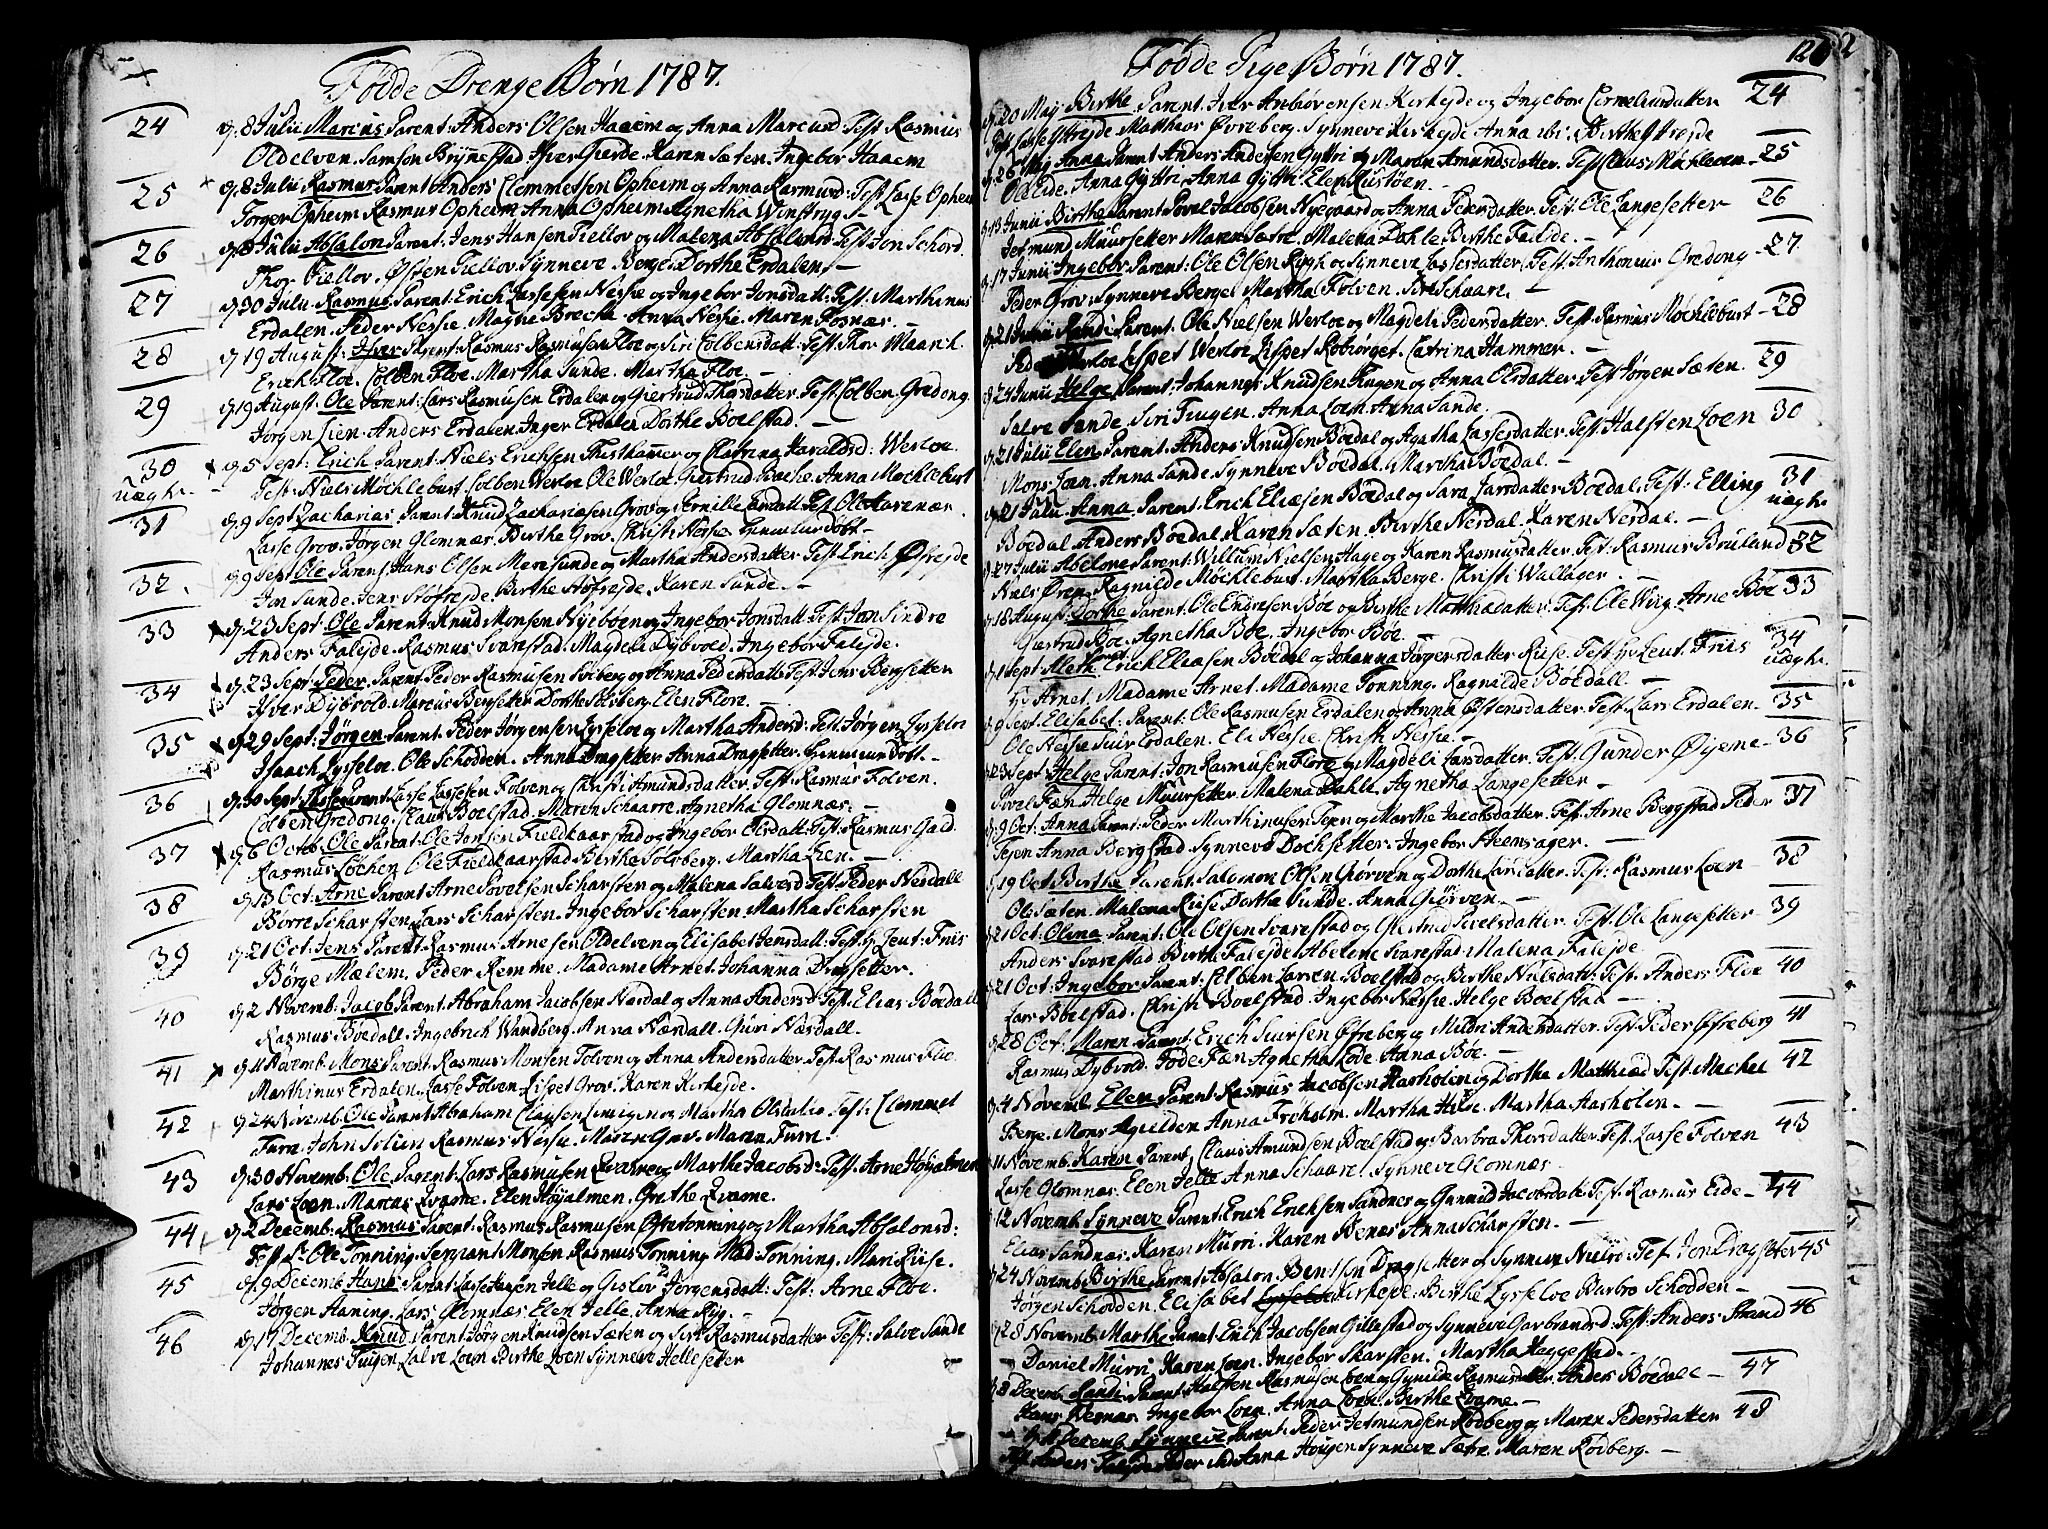 Födde Drenge Børn 1787.
24 d. 8 Julii Marcus Parent: Anders Olsen Haaem og Anna Marcusd Test: Rasmus
Oldelven. Samson Brynestad Iver Gierde. Karen Sæten. Ingebor Haaem
25 d. 8 Julii Rasmus Parent Anders Clemmetsen Opheim og Anna Rasmusd: Test: Lasse Opheim
Torger Opheim Rasmus Opheim Anna Opheim Agnetha Winstryg
26 d. 8 Julii Absalon Parent: Jens Hansen Fiellov og Malena Absalonsd: Test: Jon Schord.
Thor Fiellov. Østen Fiellov. Synneve Berge. Dorthe Erdalen. —
27 d. 30 Julii Rasmus Parent: Erich Lassesen Nessie og Ingebor Jonsdatt: Test: Marthinus
Erdalen. Peder Nessie. Magne Brecke Anna Nessie. Maren Fosnær. —
28 d. 19 August: Iver Parent: Rasmus Rasmusen Floe og Siri Colbensdatt: Test: Thor Maarch.
Erich Floe. Colben Floe. Martha Sunde. Martha Floe. —
29 d. 19 August: Ole Parent: Lars Rasmusen Erdalen og Giertrud Thorsdatter Test: Colben Gredong.
Jørgen Lien. Anders Erdalen. Inger Erdalen Dorthe Boelstad. —
30 d. 5 Sept: Erich Parent: Niels Erichsen Thistkammer og Chatrina Haraldsd: Werloe.
uægte. Test: Niels Møchlebust. Colben Werloe Ole Werloe. Giertrud Anna Mochlebust
31 d. 9 Sept Zacharias Parent: Knud Zachariasen Grov og Pernille Test Ole Aarenær.
Lasse Grov. Jørgen Glomnæs. Berthe Grov. Christi Nessie. hiemmedobt —
32. d. 9 Sept Ole Parent: Hans Olsen Meresunde og Martha Andersdatter Test: Erich
Jon Sunde. Jens Karen Sunde. —
33 d. 23 Sept: Ole Parent: Knud Monsen Nyebøen og Ingebor Jonsdatt: Test: Jon Sindre
Anders Faleide. Rasmus Svarstad. Magdeli Dybvold. Ingebor Faleide.
34 d. 23 Sept: Peder Parent: Peder Rasmusen og Anna Pedersdatt: Test: Jens Bergsetter
Iver Dybvold. Marcus Bergsetter Dorthe Elen Flore. —
35 d. 29 Sept: Jørgen Parent: Peder Jørgensen Lysseloe og Martha Andersd: Test: Jørgen Lysseloe
Isaach Lysseloe. Ole Schodden. Anna Dragsetter Anna Dragsetter. hiemmedobt. —
36 d. 30 Sept: Lasse Parent: Lasse Lassesen Folven og Christi Amundsdatter. Test: Rasmus Folven.
Colben Gredong. Claus Boelstad. Maren Schaarre. Agnetha Glomnæs. —
37 d. 6 Octob: Ole Parent: Ole Jonsen Fieldkaarstad og Ingebor Olsdatt: Test: Rasmus Gald.
Rasmus Løchen Ole Fieldkaarstad. Birthe Solvberg. Martha Lien. —
38 d. 13 Oct: Arne Parent Arne Povelsen Scharsten og Malena Salvesd Test: Peder Nesdall
Børre Scharsten Lars Scharsten. Ingebor Scharsten Martha Scharsten
39 d. 21 Oct: Jens Parent: Rasmus Arnesen Oldelven og Elisabet Jensdatt: Test: Hr Leut: Friis
Børge Mælem. Peder Remme. Madame Arnet. Johanna Dragsetter.
40 d. 2 Novemb: Jacob Parent: Abraham Jacobsen Nærdal og Anna Andersd Test: Elias Bødall
Rasmus Bødall. Ingebrich Wandberg. Anna Nærdall. Guri Næsdall.
41 d. 11 Novemb. Mons Parent: Rasmus Monsen Folven og Anna Andersdatter Test: Rasmus Floe.
Marthinus Erdalen. Lasse Folven. Lispet Grov. Karen Kirkejde.
42 d. 24 Novemb. Ole Parent Abraham Clausen og Martha Olsdatter Test: Clemmet
Turn. John Rasmus Nessie. Maren Grov. Maren Turn.
43 d. 30 Novemb. Ole Parent: Lars Rasmusen Qvame og Marthe Jacobsd: Test: Arne Høyalmen
Lars Loen. Marcus Qvame. Elen Høyalmen. Grethe Qvame.
44 d. 2 Decemb. Rasmus Parent: Rasmus Rasmusen Øfretonning og Martha Absalonsd:
Test Sr. Ole Tonning. Sergiant Monsen Rasmus Tonning Mad: Tonning. Mari Riise.
45 d. 9 Decemb. Hans Parent: Lasse Hansen Jelle og Gislov Jørgensdatt: Test: Arne Floe.
Jørgen Haning. Lars Glomnæs Elen Jelle. Anna Ryg. —
46 d. 17 Decemb. Knud Parent: Jørgen Knudsen Sæten og Siri Rasmusdatter Test: Salve Sande
Johannes Tuigen Salve Loen Birthe Loen Synneve Hellesetter
Födde Pige Børn 1787.
126
d. 20 May Birthe Parent: Iver Anbiørensen Kirkejde og Ingebor Corneliusdatter 24
Test: Lasse Yttrejde Matthias Øvreberg. Synneve Kirkejde Anna ibi. Birthe Yttrejde
d. 26 May Anna Parent Anders Andersen Gyttri og Maren Amundsdatter. Test: Claus Mochleven 25
Ole Eide. Anna Gyttri. Anna Gyttri. Elen Kustøen. —
d. 13 Junii Birthe Parent Povel Jacobsen Nyegaard og Anna Pedersdatter. Test: Ole Langesetter 26
Jetmund Muursetter Maren Sætre. Malena Dahle. Birthe Faleide. —
d. 17 Junii Ingebor Parent: Ole Olsen Rygh og Synneve Lassesdatter Test: Anthonius Gredong 27
Peder Grov. Synneve Berge. Martha Folven. Siri Schaare. —
d. 21 Junii Randi Parent. Ole Nielsen Werloe og Magdeli Pedersdatter. Test: Rasmus Mochlebust 28
Peder Werloe Lispet Werloe Lispet Robiørget. Catrina Hammer. —
d. 24 Junii Helge Parent: Johannes Knudsen Tuigen og Anna Olsdatter. Test: Jørgen Sæten. 29
Salve Sande. Siri Tuigen. Anna Loen. Anna Sande.
d. 21 Julii Elen Parent: Anders Knudsen Bødal og Agatha Lassesdatter. Test: Halsten Loen 30
Mons Loen. Anna Sande. Synneve Bødal. Martha Bødal. —
d. 21 Julii. Anna. Parent: Erich Eliæsen Bødal og Sara Larsdatter Bødal. Test: Elling 31 uægte.
Bødal Anders Bødal. Karen Sæten. Birthe Nerdal. Karen Nerdal. —
d. 27 Julii Abelone Parent: Willum Nielsen Hage og Karen Rasmusdatter. Test: Rasmus Bruland 32
Niels Øren. Ragnilde Møchlebust. Martha Berge. Christi Wallager. —
d. 18 August: Dorthe Parent: Ole Endresen Bøe og Birthe Matthiædatter. Test: Ole Wiig. Arne Bøe 33
Giertrud Bøe. Agnetha Bøe. Ingebor Bøe. —
d. 1 Sept. Erich Eliæsen Bødal og Johanna Jørgensdatter Riise. Test: Hr. Leut: Friis 34 uægte.
Hr Arnet. Madame Arnet. Madame Tonning. Ragnilde Bødall. —
d. 9 Sept. Elisabet. Parent: Ole Rasmusen Erdalen og Anna Østensdatter. Test: Lars Erdalen. 35
Ole Nessie Siur Erdalen. Eli Nessie. Christi Nessie. —
d. 23 Sept. Helge Parent: Jon Rasmusen Flore og Magdeli Larsdatter. Test: Gunder Øyeme 36
Povel Fæn Helge Muursetter. Malena Dahle. Agnetha Langesetter —
d. 9 Oct. Anna Parent: Peder Marthinusen Tejen og Marthe Jacobsdatter. Test: Arne Bergstad Peder 37
Tejen Anna Bergstad Synneve Dochsetter. Ingebor Steensager. —
d. 19 Oct. Birthe Parent: Salomon Olsen Giørven og Dorthe Larsdatter. Test: Rasmus Loen 38
Ole Sæten. Malena Riise. Dorthe Sunde. Anna Giørven. —
d. 21 Oct: Olina Parent: Ole Olsen Svarestad og Giertrud Povelsdatter. Test: Ole Langesetter 39
Anders Svarestad Birthe Falejde Abelone Svarestad Malena Falejde
d. 21 Oct. Ingebor Parent: Colben Larsen Boelstad og Birthe Nielsdatt: Test: Anders Floe 40
Lars Boelstad. Christi Boelstad. Ingebor Næssie. Helge Boelstad —
d. 28 Oct. Maren. Parent: Erich Siursen Øfreberg og Mildri Andersdatter. Test: Peder Øfreberg 41
Rasmus Dybvold. Tode Fæn Agnetha Rode Anna Bøe —
d. 4 Novemb. Elen Parent: Rasmus Jacobsen Aarholen og Dortha Matthiæd Test: Mechel 42
Berge. Mons Anna Frøholm. Martha Hilde. Martha Aarholen. —
d. 11 Novemb. Karen Parent: Claus Amundsen Boelstad og Barbra Thorsdatter. Test: Lasse Folven 43
Lasse Glomnæs. Elen Jelle Anna Schaare. Synneve Glomnæs.
d. 12 Novemb. Synneve Parent: Erich Erichsen Sandnes og Gunnild Jacobsdatt. Test: Rasmus Eide 44
Elias Sandnæs. Karen Murri. Karen Nenæs Anna Scharsten. —
d. 24 Novemb. Birthe Parent Absalon Bentsen Dragsetter og Synneve Nielsd: Test: Jon Dragsetter 45
Jørgen Schodden. Elisabet Kirkejde. Birthe Lysseloe Barbro Schodden —
d. 28 Novemb. Marthe Parent Erich Jacobsen Gillestad og Synneve Garbrandsd: Test: Anders Strand 46
Daniel Murri. Karen Loen. Ingebor Skarsten. Martha Haggestad. —
d. 8 Decemb. Randi Parent: Halsten Rasmusen Loen og Gunilde Rasmusdatter. Anders Bødall 47
Hans Nesnæs Ingebor Loen. Anna Loen. Birthe Qvame. —
d. 11 Decemb. Synneve Parent: Peder Jetmundsen Rødberg og Maren Pedersdatter 48
Test Anders Faleide Peder ibid Anna Hougen Synneve Sætre. Maren Rødberg. —